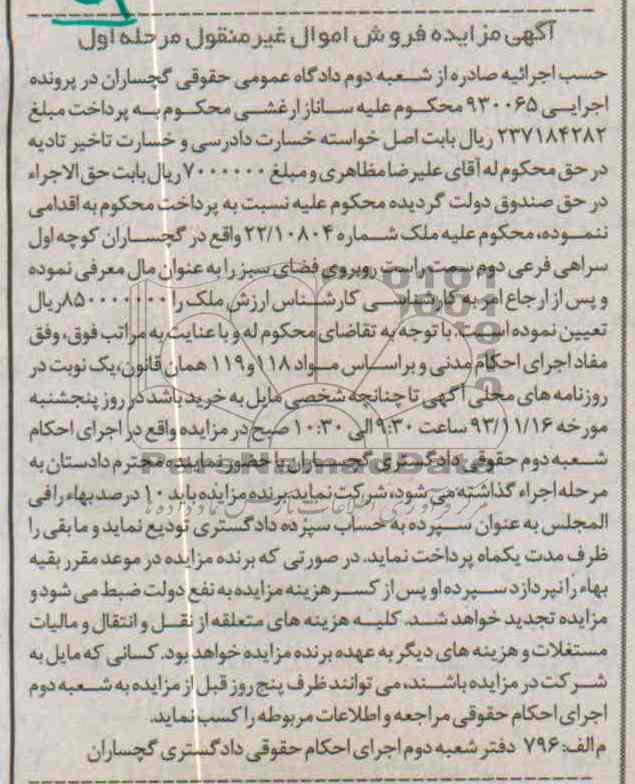 آگهی مزایده فروش اموال غیر منقول مرحله اول
حسب اجرائیه صادره از شعبه دوم دادگاه عمومی حقوقی گچساران در پرونده
اجرایی ۹۳۰۰۶۵ محکوم علیه ساناز ارغشی محکوم به پرداخت مبلغ
۲۳۷۱۸۴۲۸۲ ریال بابت اصل خواسته خسارت دادرسی و خسارت تاخیر تادیه
در حق محکوم له آقای علیرضا مظاهری و مبلغ ۷۰۰۰۰۰۰ ریال بابت حق الاجراء
در حق صندوق دولت گردیده محکوم علیه نسبت به پرداخت محکوم به اقدامی
ننموده، محکوم علیه ملک شماره ۲۲/۱۰۸۰۴ واقع در گچساران کوچه اول
سراهی فرعی دوم سمت راست روبروی فضای سبز را به عنوان مال معرفی نموده
و پس از ارجاع امر به کارشناسی کارشناس ارزش ملک را ۸۵۰۰۰۰۰۰۰ ریال
تعیین نموده است. با توجه به تقاضای محکوم له و با عنایت به مراتب فوق، وفق
مفاد اجرای احکام مدنی و براساس مواد ۱۱۸ و ۱۱۹ همان قانون، یک نوبت در
روزنامه های محلی آگهی تا چنانچه شخصی مایل به خرید باشد در روز پنجشنبه
مورخه ۹۳/۱۱/۱۶ ساعت ۹:۳۰ الی ۱۰:۳۰ صبح در مزایده واقع در اجرای احکام
شعبه دوم حقوقی دادگستری گچساران با حضور نماینده محترم دادستان به
مرحله اجراء گذاشته می شود، شرکت نماید. برنده مزایده باید ۱۰ درصد بهاء رافی
المجلس به عنوان سپرده به حساب سپرده دادگستری تودیع نماید و مابقی را
ظرف مدت یکماه پرداخت نماید. در صورتی که برنده مزایده در موعد مقرر بقیه
بهاء را نپردازد سپرده او پس از کسر هزینه مزایده به نفع دولت ضبط می شود و
مزایده تجدید خواهد شد. کلیه هزینه های متعلقه از نقل و انتقال و مالیات
مستغلات و هزینه های دیگر به عهده برنده مزایده خواهد بود. کسانی که مایل به
شرکت در مزایده باشند، می توانند ظرف پنج روز قبل از مزایده به شعبه دوم
اجرای احکام حقوقی مراجعه و اطلاعات مربوطه را کسب نماید.
م الف: ۷۹۶ دفتر شعبه دوم اجرای احکام حقوقی دادگستری گچساران
ParsNamadData